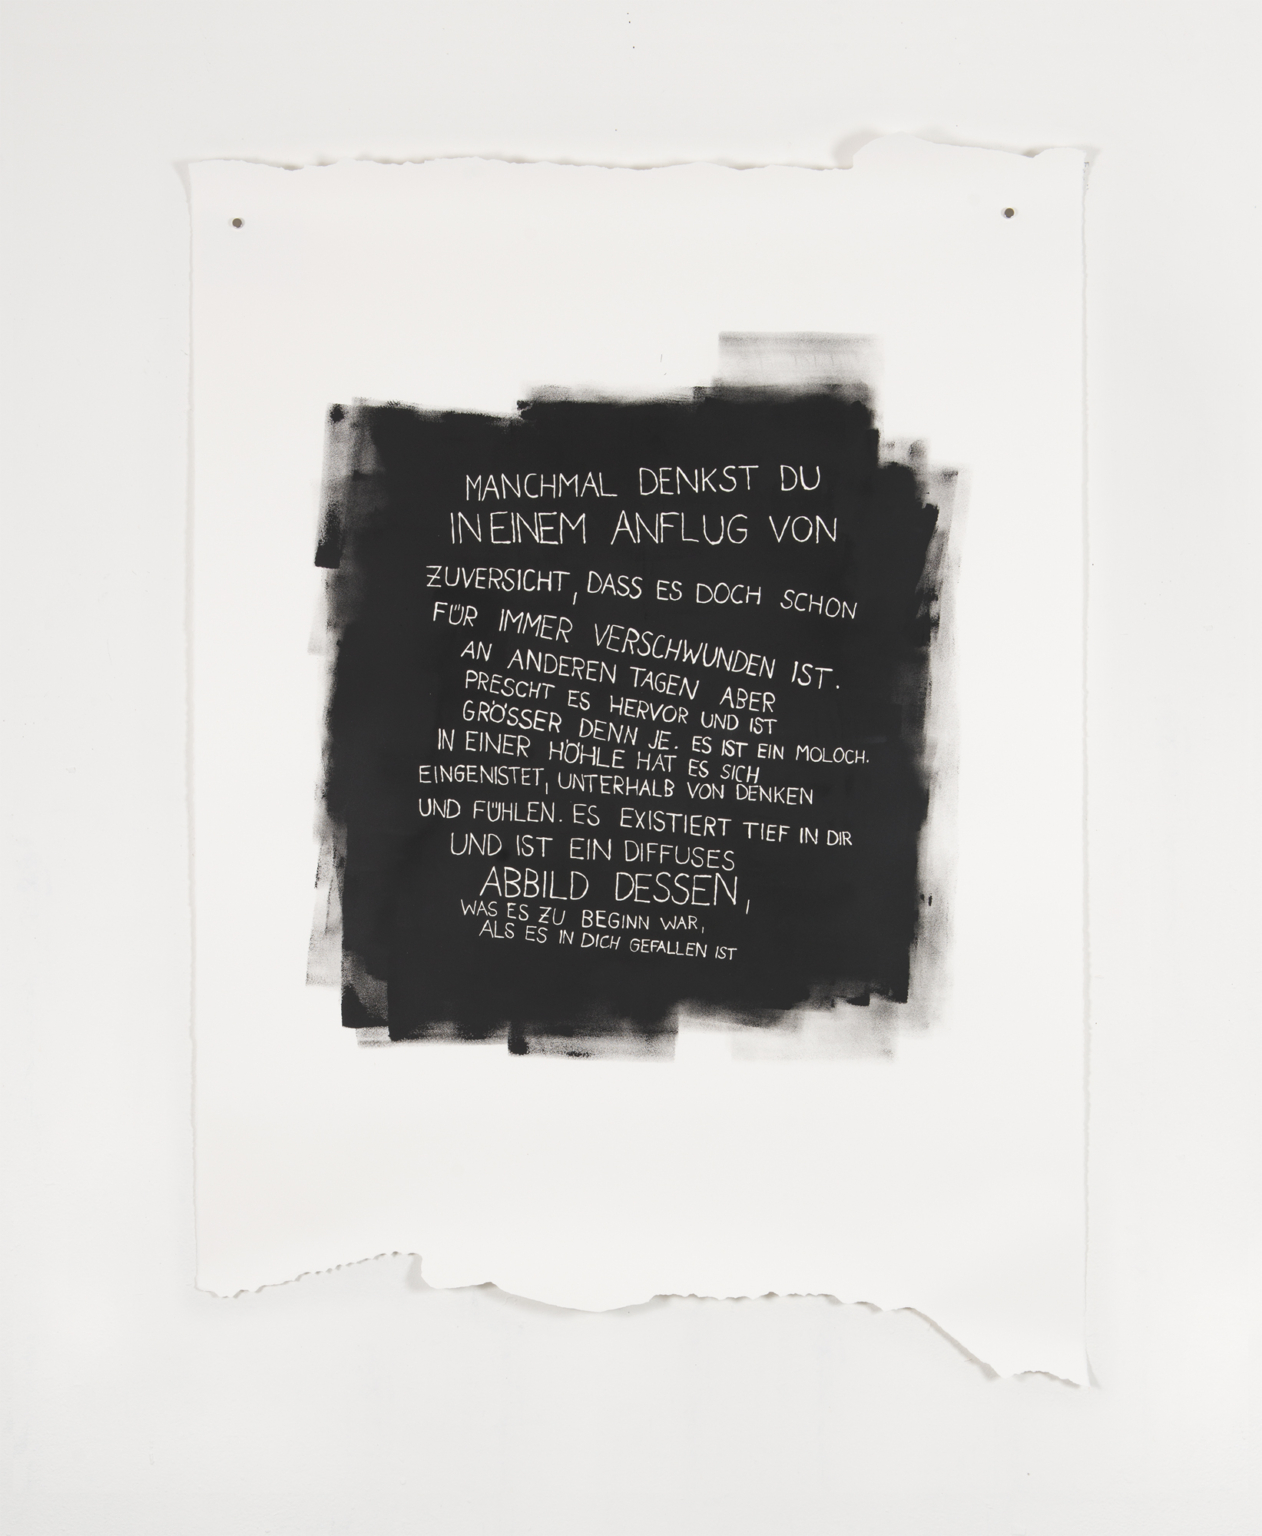 MANCHMAL DENKST DU
IN EINEM ANFLUG VON
ZUVERSICHT, DASS ES DOCH SCHON
FÜR IMMER VERSCHWUNDEN IST.
AN ANDEREN TAGEN ABER
PRESCHT ES HERVOR UND IST
GRÖSSER DENN JE. ES IST EIN MOLOCH.
IN EINER HÖHLE HAT ES SICH
EINGENISTET, UNTERHALB VON DENKEN
UND FÜHLEN. ES EXISTIERT TIEF IN DIR
UND IST EIN DIFFUSES
ABBILD DESSEN,
WAS ES ZU BEGINN WAR,
ALS ES IN DICH GEFALLEN IST